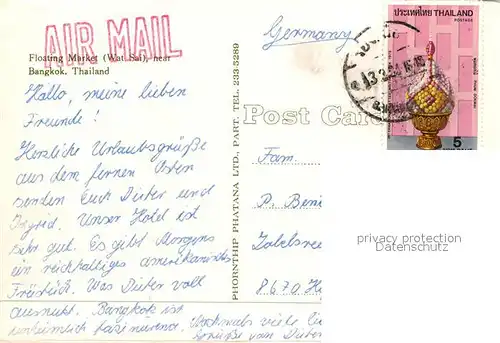 AIR MAIL
Floating Market (Wat Sai), near
Bangkok, Thailand
Hallo, meine lieben
Freunde!
Herzliche Urlaubsgrüße
aus dem fernen Osten
senden Euch Dieter und
Ingrid. Unser Hotel ist
sehr gut. Es gibt Morgens
ein reichhaltiges amerikanisches
Frühstück. Was Dieter voll
ausnutzt. Bangkok ist
unheimlich faszinierend. Nochmals viele
Grüße von Dieter
PHORNTHIP PHATANA LTD., PART. TEL. 233-5289
Germany
Post Car
Fam.
P. Beni
Zabelsree
8670 H
ประเทศไทย THAILAND
POSTAGE
5
privacy protection
Datenschutz